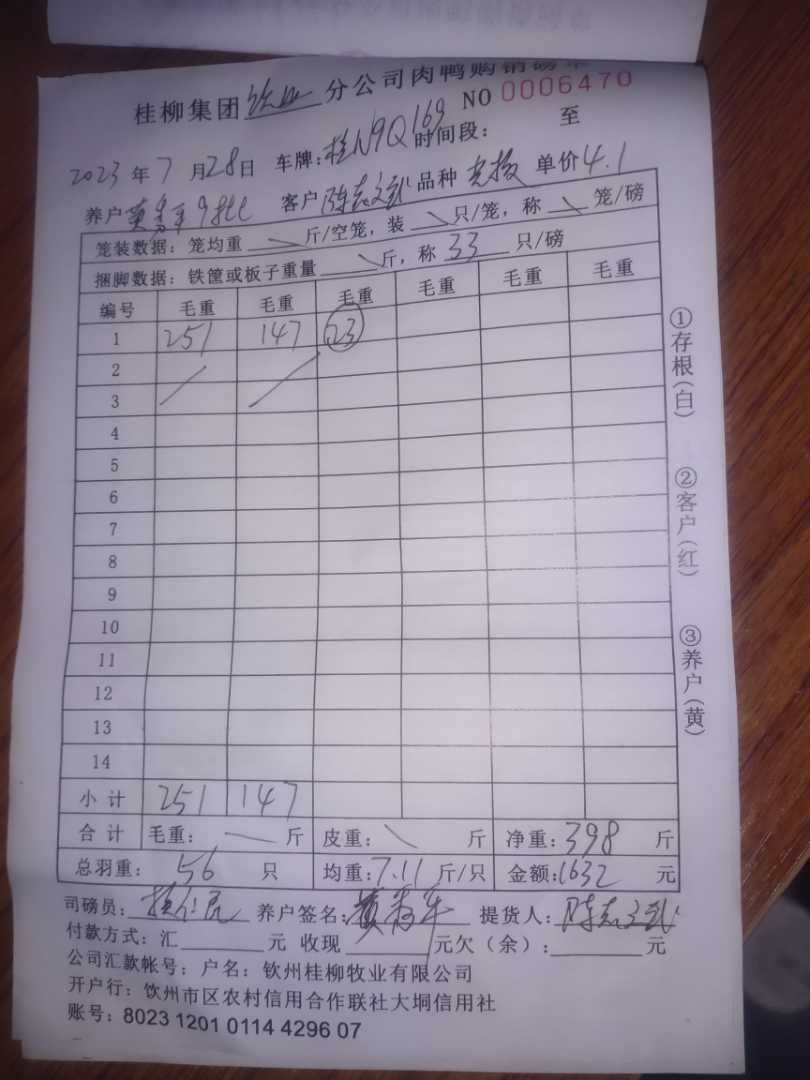 桂柳集团 钦州 分公司肉鸭购销磅单
NO 0006470
2023 年 7 月 28 日 车牌: 桂N9Q169 时间段: 至
养户 黄 客户 陈志文 品种 单价 4.1
笼装数据: 笼均重 斤/空笼, 装 只/笼, 称 笼/磅
捆脚数据: 铁筐或板子重量 斤, 称 33 只/磅
编号 毛重 毛重 毛重 毛重 毛重 毛重
1 251 147 23
2
3
4
5
6
7
8
9
10
11
12
13
14
小计 251 147
合计 毛重: 斤 皮重: 斤 净重: 398 斤
总羽重: 56 只 均重: 7.11 斤/只 金额: 1632 元
司磅员: 养户签名: 黄 提货人: 陈志文
付款方式: 汇 元 收现 元欠(余): 元
公司汇款帐号: 户名: 钦州桂柳牧业有限公司
开户行: 钦州市区农村信用合作联社大垌信用社
账号: 8023 1201 0114 4296 07
①存根(白)
②客户(红)
③养户(黄)